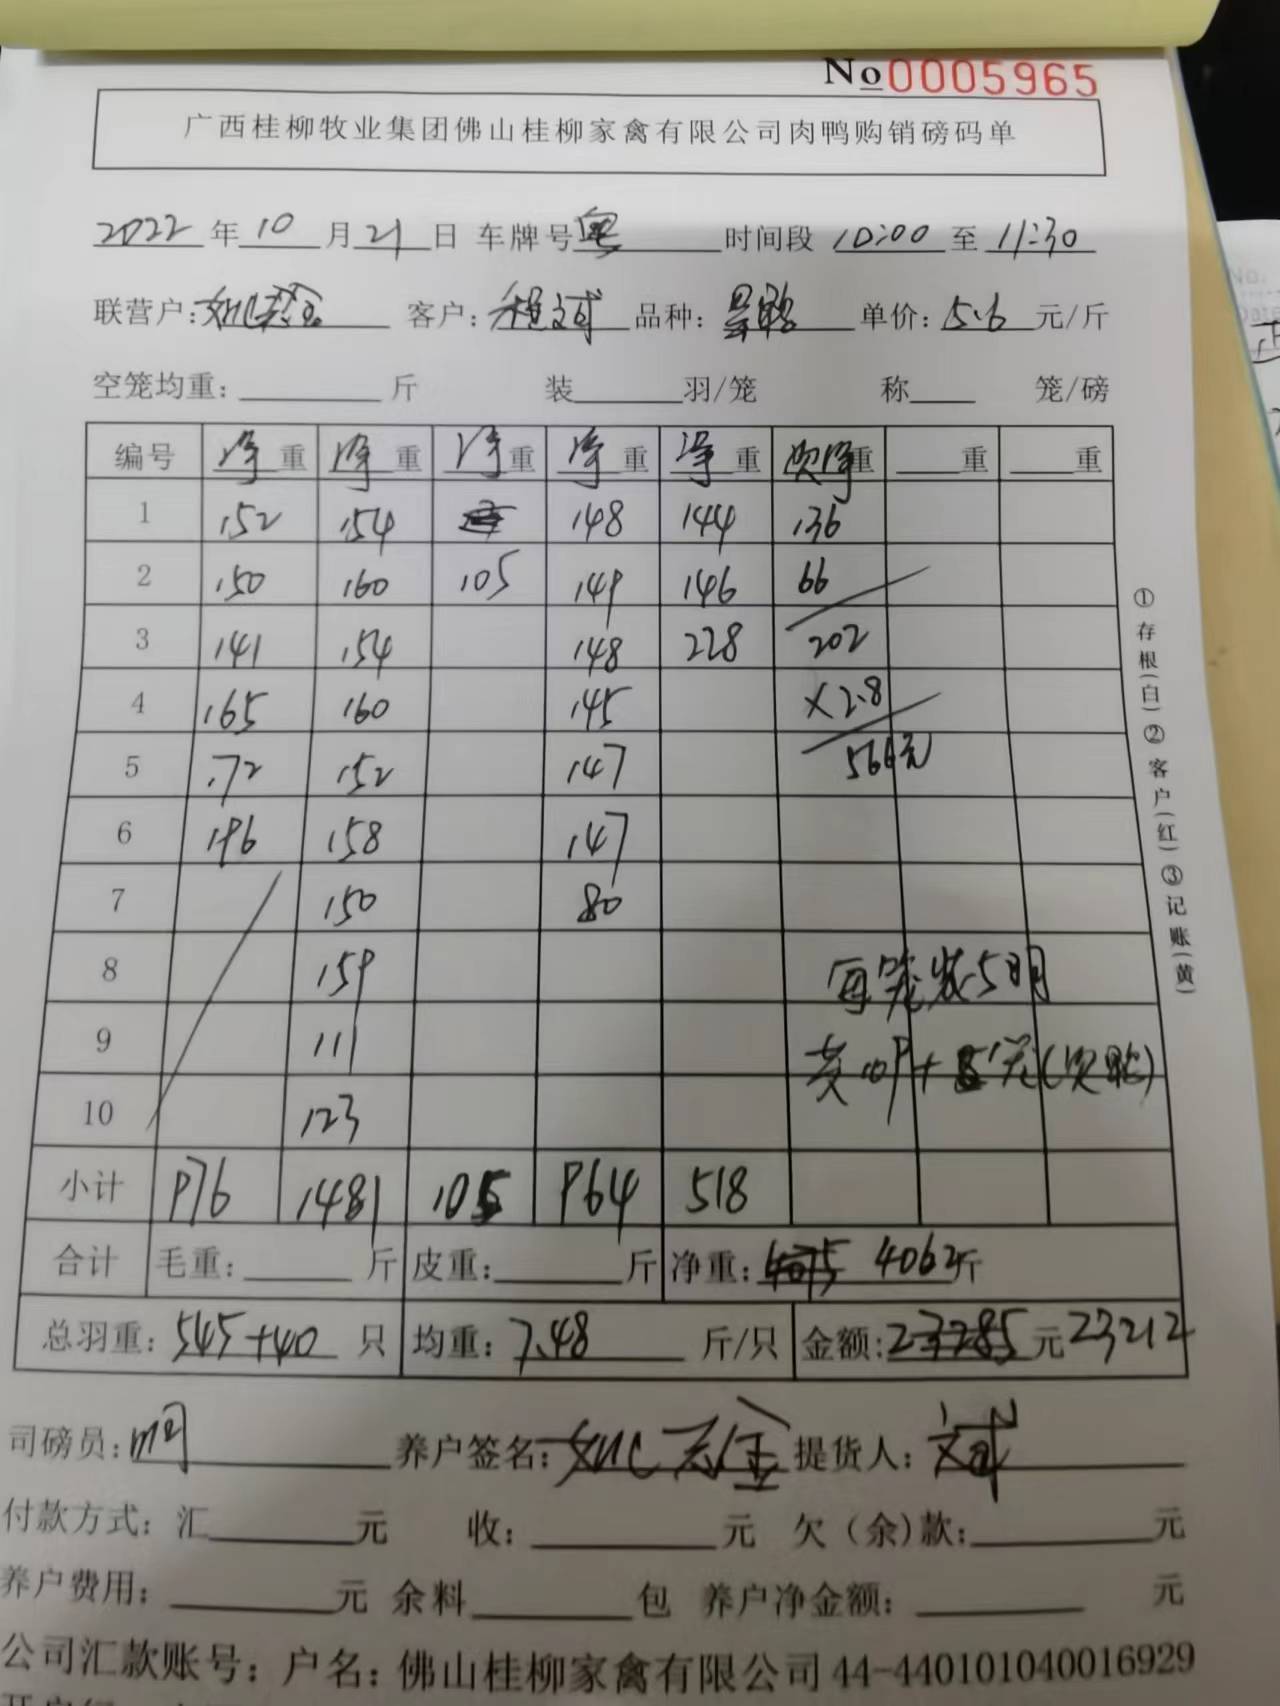 No 0005965
广西桂柳牧业集团佛山桂柳家禽有限公司肉鸭购销磅码单
2022 年 10 月 21 日 车牌号 粤 时间段 10:00 至 11:30
联营户: 客户: 程斌 品种: 单价: 5.6 元/斤
空笼均重: 斤 装 羽/笼 称 笼/磅
编号 净重 净重 净重 净重 净重 次净重 重 重
1 152 154 148 144 136
2 150 160 105 149 146 66
3 141 154 148 228 202
4 165 160 145 ×2.8
5 172 152 147 566元
6 196 158 147
7 150 80
8 159 每笼装5
9 111 +5元(次
10 123
小计 976 1481 105 964 518
合计 毛重: 斤 皮重: 斤 净重: 4075 4062斤
总羽重: 545+40 只 均重: 7.48 斤/只 金额: 23285 元 23212
司磅员: 养户签名: 提货人: 斌
付款方式: 汇 元 收: 元 欠(余)款: 元
养户费用: 元 余料 包 养户净金额: 元
公司汇款账号: 户名: 佛山桂柳家禽有限公司 44-440101040016929
①存根(白)②客户(红)③记账(黄)